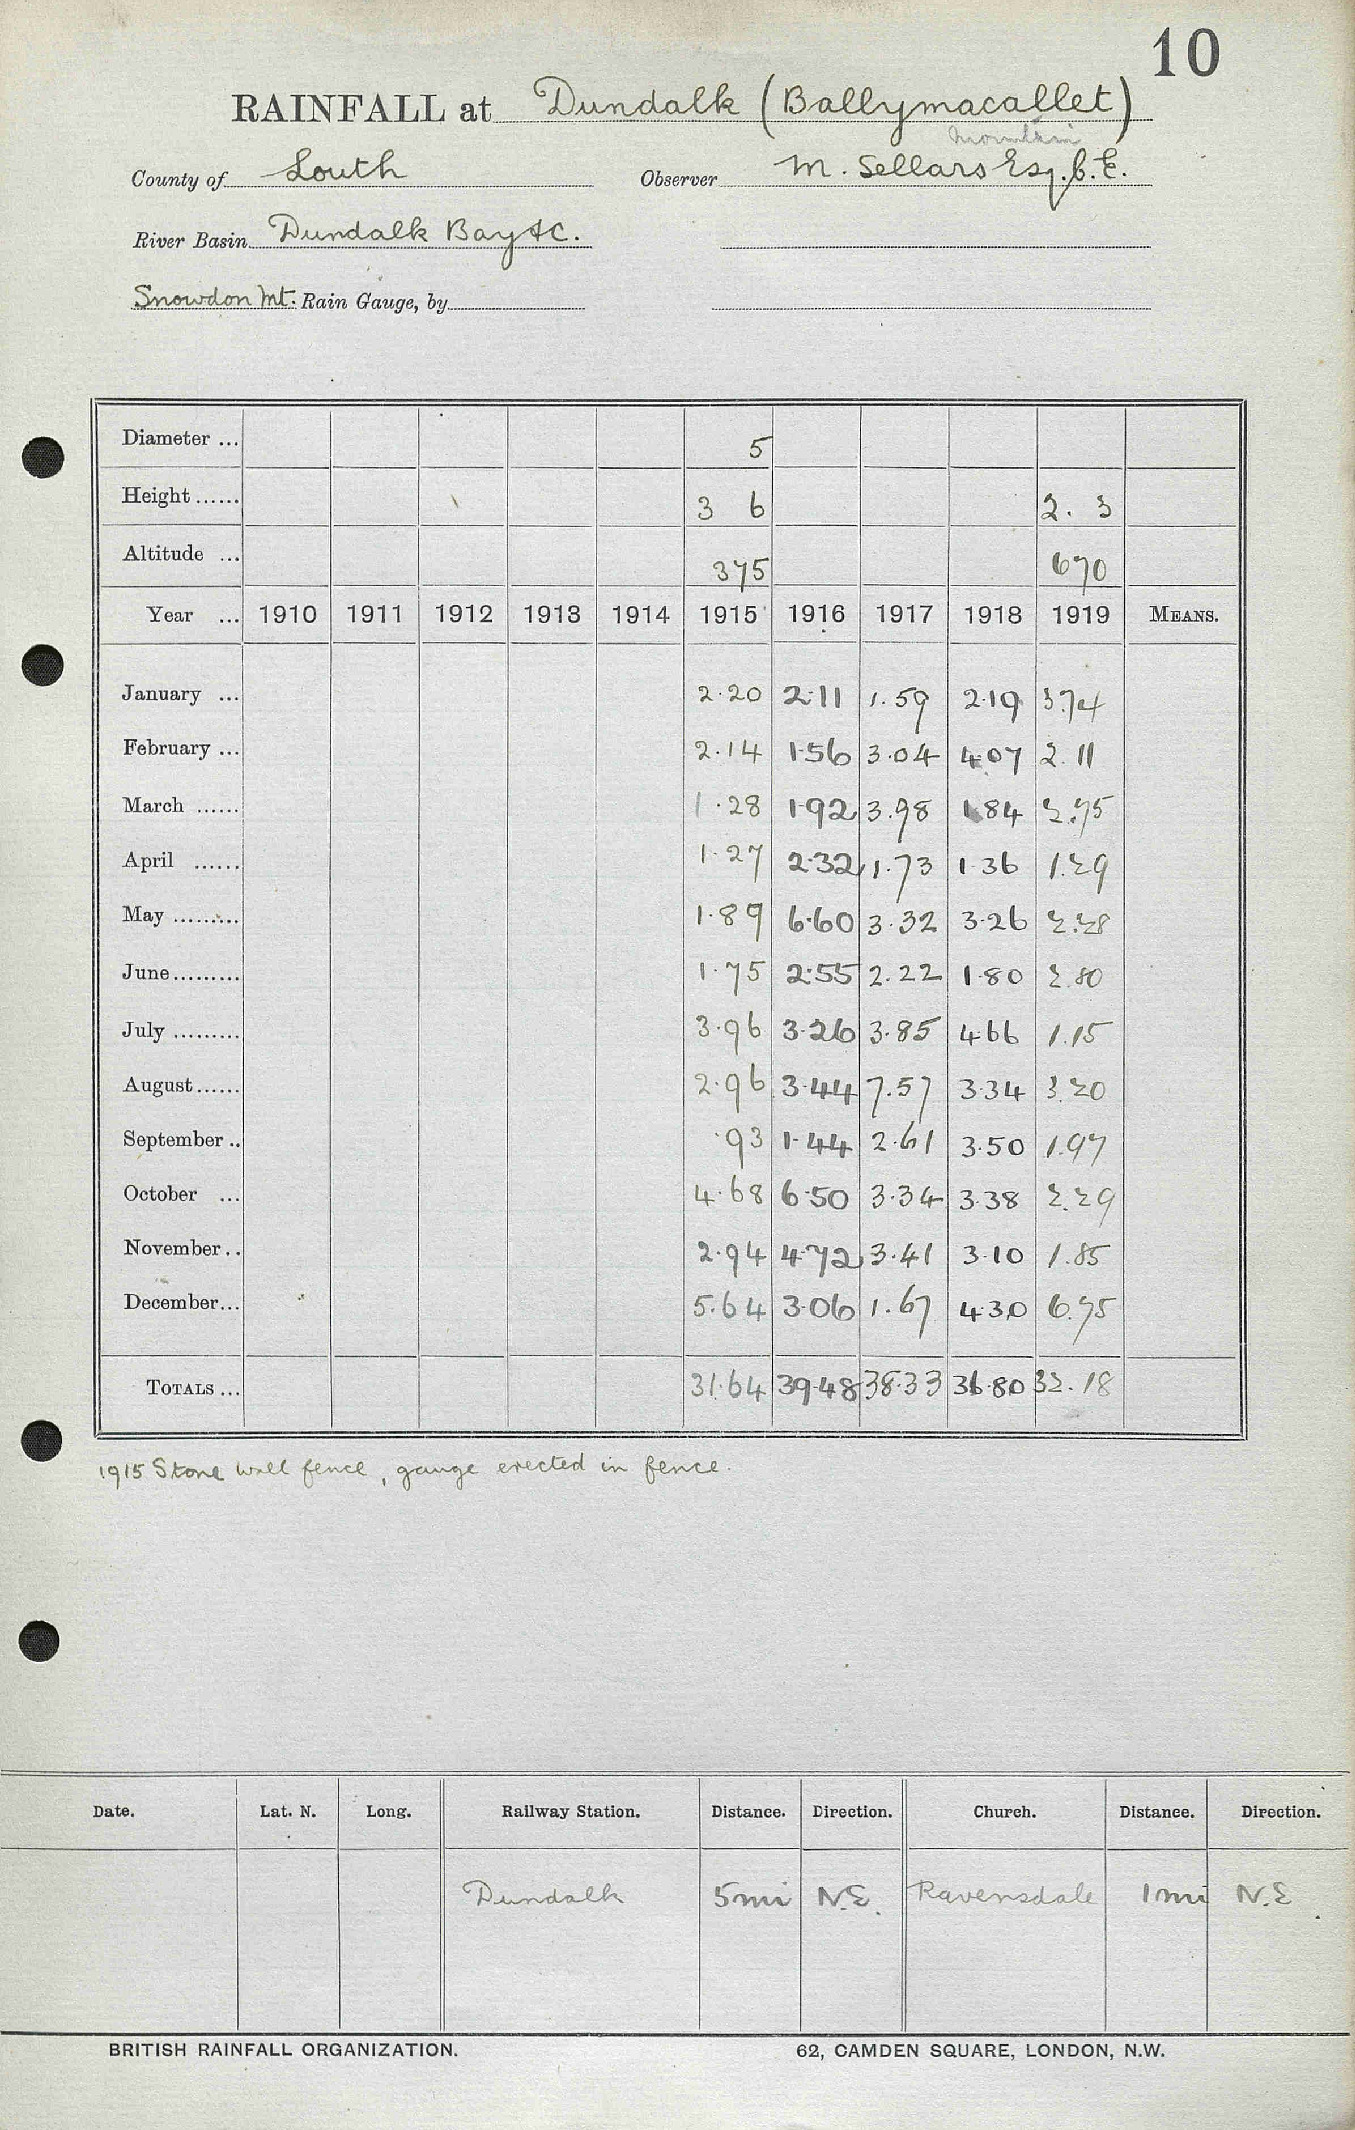 10
RAINFALL at Dundalk (Ballymacallet)
Mountain
County of Louth Observer M. Sellars Esq. C.E.
River Basin Dundalk Bay &c.
Snowdon Mt. Rain Gauge, by
Diameter ... 5
Height ...... 3 6 2. 3
Altitude ... 375 670
Year ... 1910 1911 1912 1913 1914 1915 1916 1917 1918 1919 MEANS.
January ... 2.20 2.11 1.59 2.19 3.74
February ... 2.14 1.56 3.04 4.07 2.11
March ...... 1.28 1.92 3.98 1.84 2.75
April ...... 1.27 2.32 1.73 1.36 1.29
May ......... 1.89 6.60 3.32 3.26 2.28
June ......... 1.75 2.55 2.22 1.80 2.80
July ......... 3.96 3.26 3.85 4.66 1.15
August ...... 2.96 3.44 7.57 3.34 3.20
September .. .93 1.44 2.61 3.50 1.97
October ... 4.68 6.50 3.34 3.38 2.29
November .. 2.94 4.72 3.41 3.10 1.85
December ... 5.64 3.06 1.67 4.30 6.75
TOTALS ... 31.64 39.48 38.33 36.80 32.18
1915 Stone wall fence, gauge erected in fence.
Date. Lat. N. Long. Railway Station. Distance. Direction. Church. Distance. Direction.
Dundalk 5 mi N.E. Ravensdale 1 mi N.E
BRITISH RAINFALL ORGANIZATION. 62, CAMDEN SQUARE, LONDON, N.W.